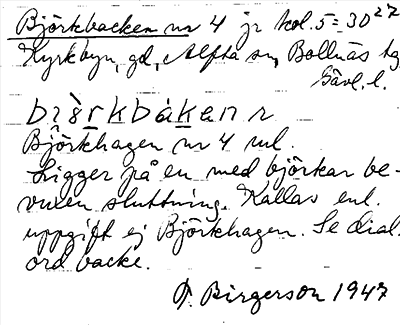 Björkbacken nr 4 jr kol. 5 = 30²⁷
Kyrkbyn, gd, Alfta sn, Bollnäs tg
Gävl. l.
bìǒrkbàkɛn n
Björkhagen nr 4 ul.
Ligger på en med björkar be-
vuxen sluttning. Kallas enl.
uppgift ej Björkhagen. Se dial.
ord backe.
P. Birgerson 1947